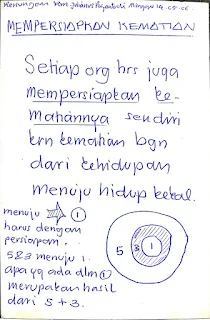 Renungan Rm Johanes Pujasumarta Minggu 14-05-06
MEMPERSIAPKAN KEMATIAN
Setiap org hrs juga
mempersiapkan ke-
matiannya sendiri
krn kematian bgn
dari kehidupan
menuju hidup kekal.
menuju 1
harus dengan
persiapan.
5&3 menuju 1.
apa yg ada dlm 1
merupakan hasil
dari 5 + 3.
5 3 1